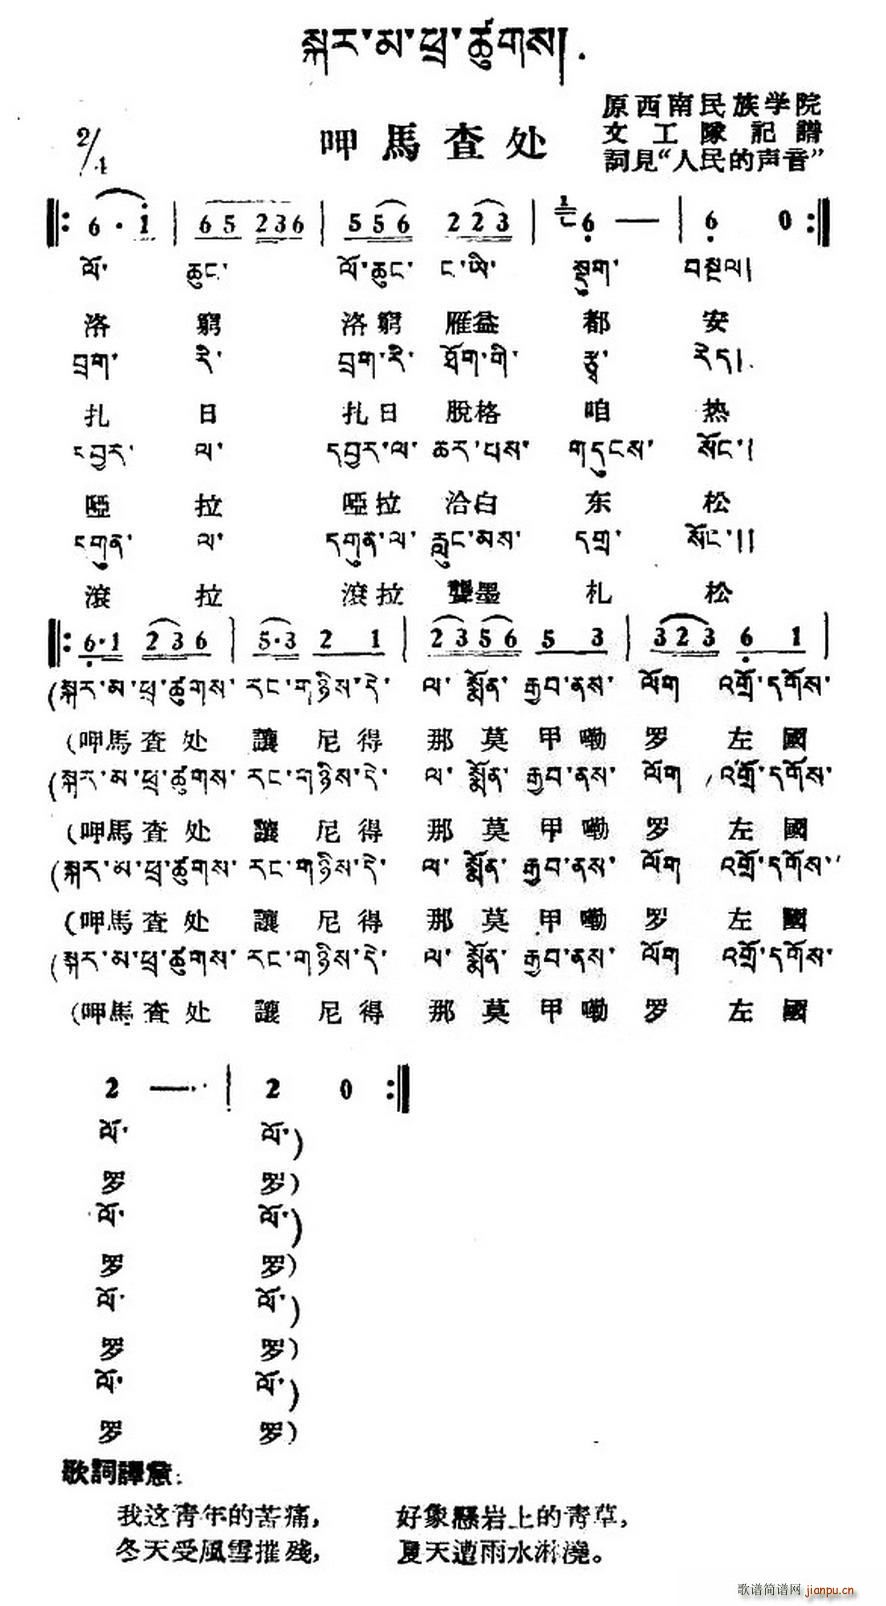 སྐར་མ་ཕྲ་ཚུགས།
呷馬查处
原西南民族学院
文工隊記譜
詞見“人民的声音”
2/4
6 · i | 65 236 | 556 223 | 6 — | 6 0 :‖
ལོ་ ཆུང་ ལོ་ཆུང་ ང་ཡི་ སྡུག་ བསྔལ།
洛 窮 洛窮 雁益 都 安
བྲག་ རི་ བྲག་རི་ ཐོག་གི་ རྩྭ་ རེད།
扎 日 扎日 脫格 咱 热
དབྱར་ ལ་ དབྱར་ལ་ ཆར་པས་ གདུངས་ སོང་།
啞 拉 啞拉 洽白 东 松
དགུན་ ལ་ དགུན་ལ་ རླུང་མས་ དགྲ་ སོང་།།
滾 拉 滾拉 龔墨 札 松
‖: 6·1 236 | 5·3 2 1 | 23 56 5 3 | 323 6 1 |
(སྐར་མ་ཕྲ་ཚུགས་ རང་གཉིས་དེ་ ལ་ སྨོན་ རྒྱབ་ནས་ ལོག འགྲོ་དགོས་
(呷馬查处 讓 尼得 那 莫 甲嘞 罗 左 國
(སྐར་མ་ཕྲ་ཚུགས་ རང་གཉིས་དེ་ ལ་ སྨོན་ རྒྱབ་ནས་ ལོག འགྲོ་དགོས་
(呷馬查处 讓 尼得 那 莫 甲嘞 罗 左 國
(སྐར་མ་ཕྲ་ཚུགས་ རང་གཉིས་དེ་ ལ་ སྨོན་ རྒྱབ་ནས་ ལོག འགྲོ་དགོས་
(呷馬查处 讓 尼得 那 莫 甲嘞 罗 左 國
(སྐར་མ་ཕྲ་ཚུགས་ རང་གཉིས་དེ་ ལ་ སྨོན་ རྒྱབ་ནས་ ལོག འགྲོ་དགོས་
(呷馬查处 讓 尼得 那 莫 甲嘞 罗 左 國
2 — | 2 0 :‖
ལོ་ ལོ་)
罗 罗)
ལོ་ ལོ་)
罗 罗)
ལོ་ ལོ་)
罗 罗)
ལོ་ ལོ་)
罗 罗)
歌詞譯意:
我这青年的苦痛, 好象懸岩上的青草,
冬天受風雪摧殘, 夏天遭雨水淋澆。
歌谱简谱网 jianpu.cn